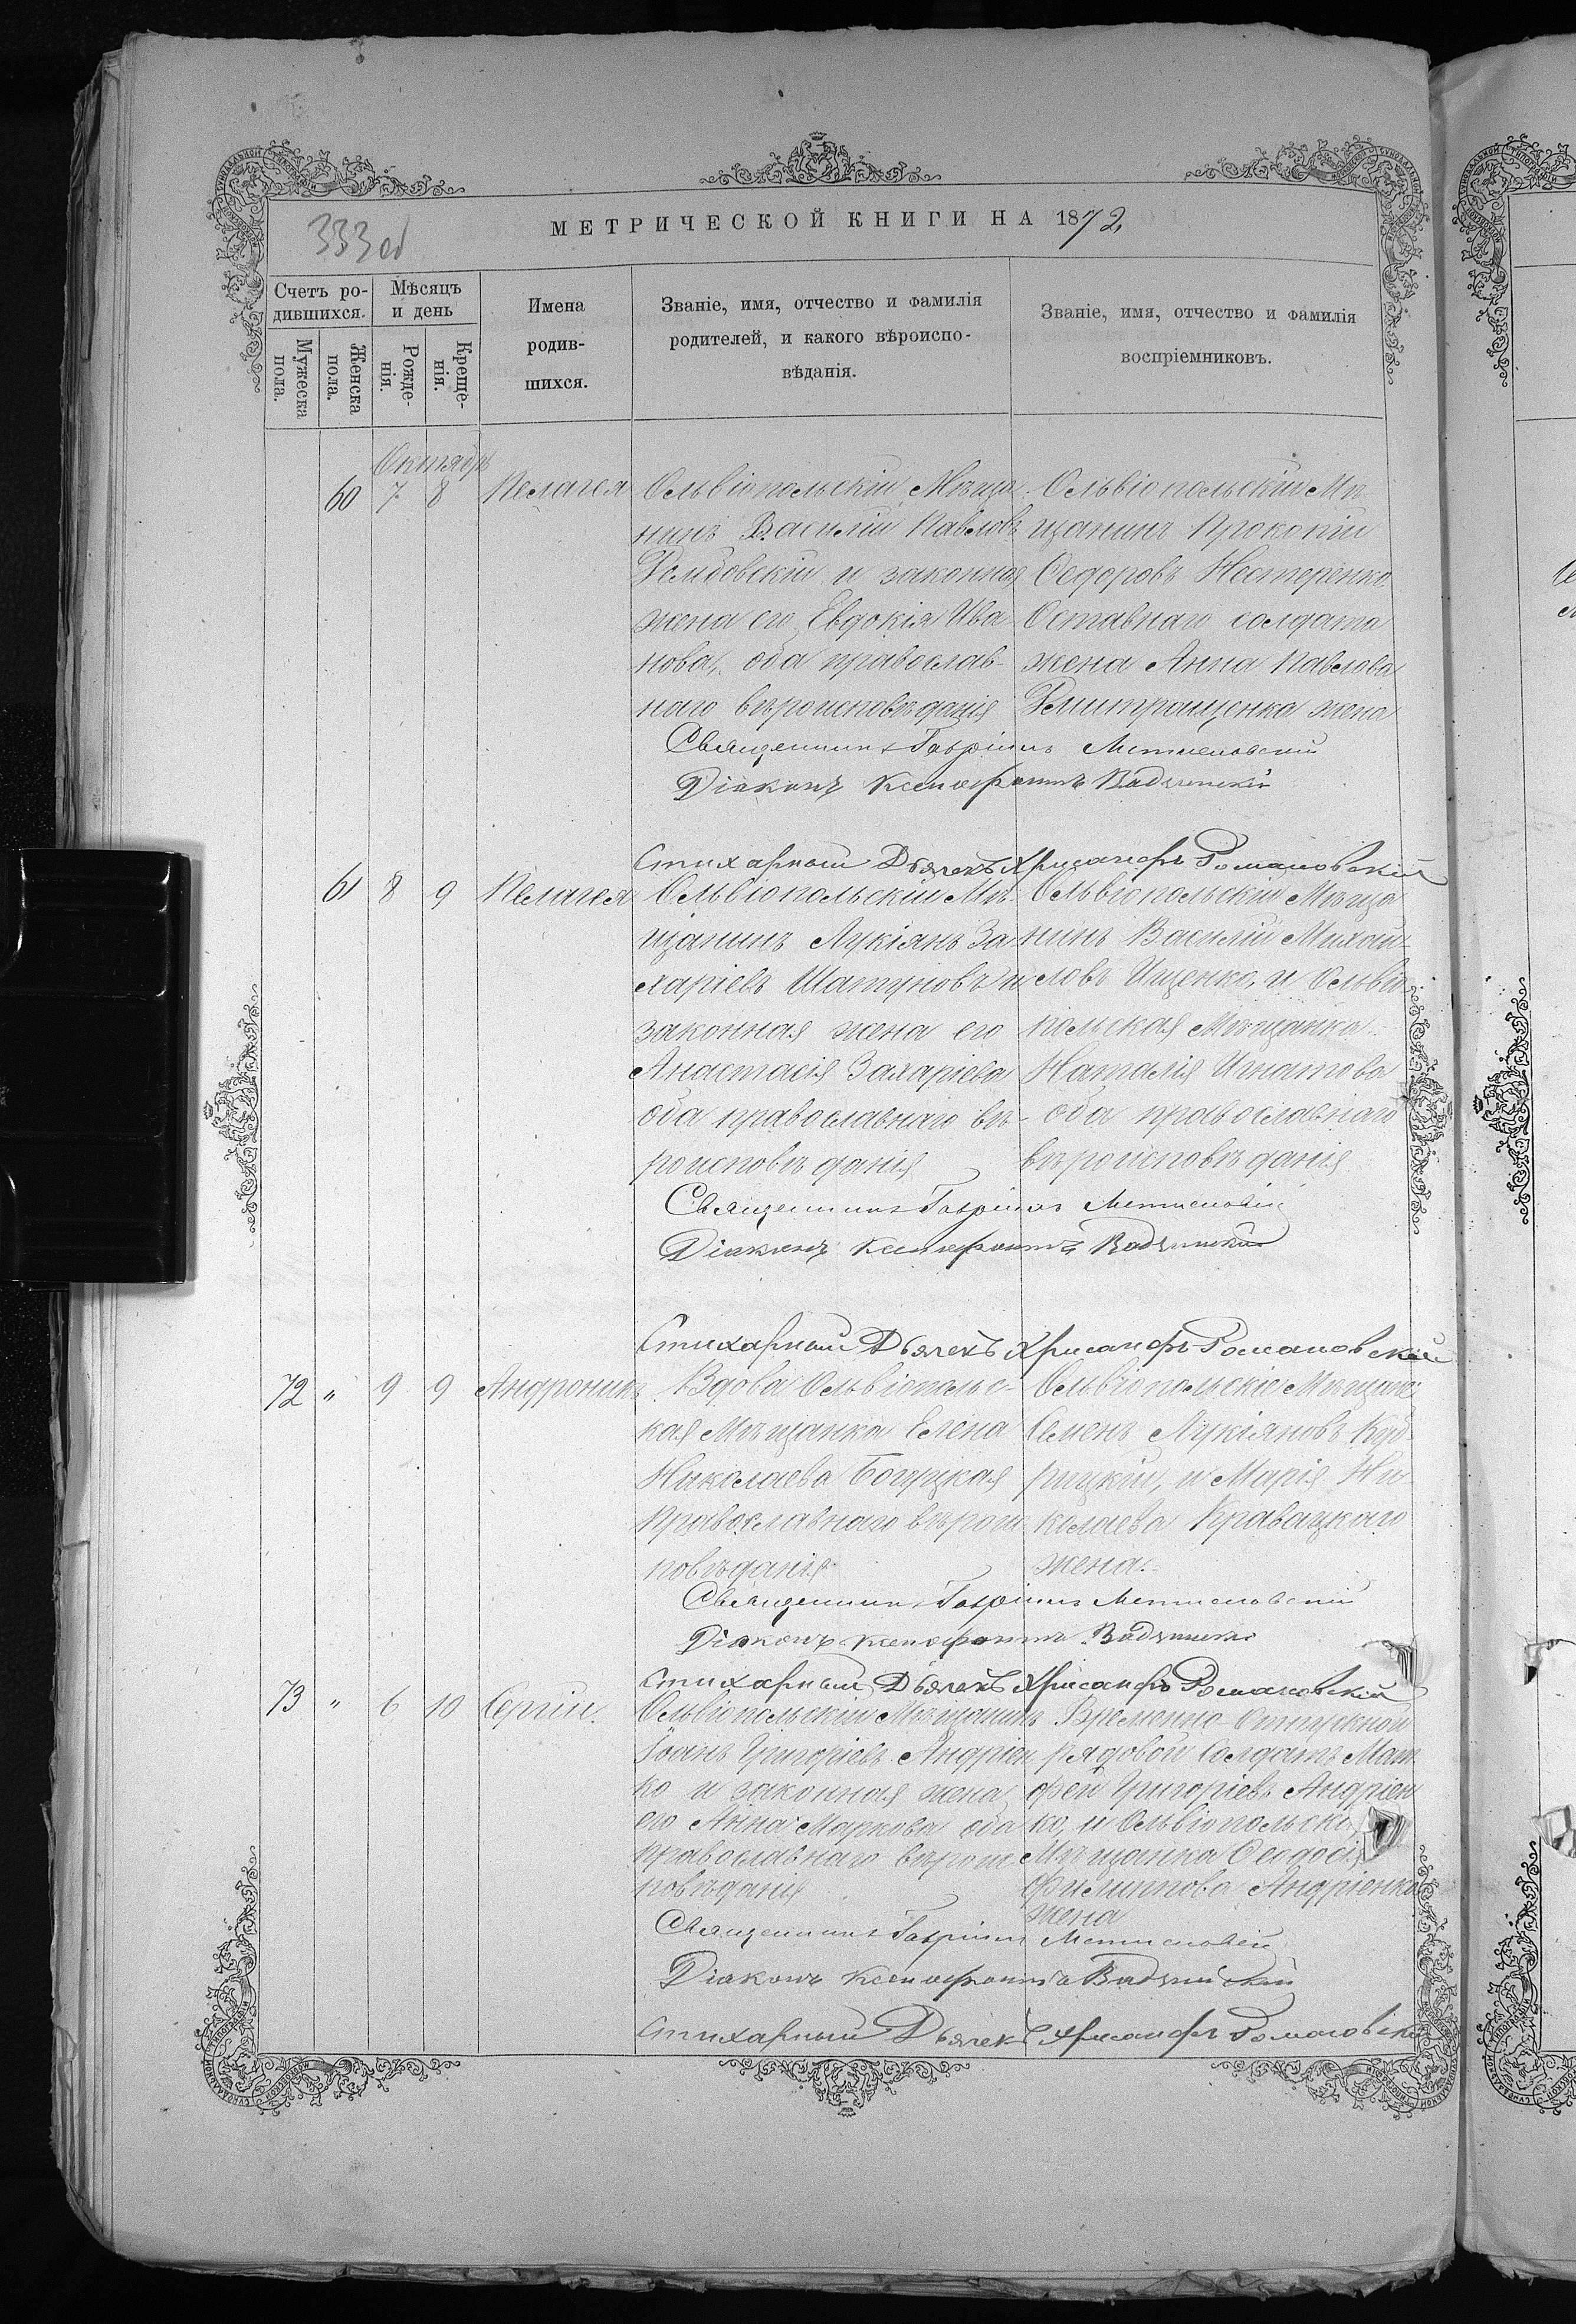 МЕТРИЧЕСКОЙ КНИГИ НА 1872,
333 об
Счетъ ро-
дившихся.
Мужеска
пола.
Женска
пола.
Мѣсяцъ
и день
Рожде-
нія.
Креще-
нія.
Имена
родив-
шихся.
Званіе, имя, отчество и фамилія
родителей, и какого вѣроиспо-
вѣданія.
Званіе, имя, отчество и фамилія
воспріемниковъ.
Октябрь
60 7 8 Пелагея
Ольвіопольскій Мѣща
нинъ Василій Павловъ
и законная
жена его Евдокія Ива
нова, оба православ-
наго вѣроисповѣданія
Ольвіопольскій Мѣ
щанинъ Прокопій
Ѳедоровъ Нестеренко
Отставнаго солдата
жена Анна Павлова
Дмитращенка жена
Священникъ Гавріилъ Мстиславскій
Діаконъ Ксенофонтъ
Стихарный Дьячекъ Хрисанфъ Романовскій
61 8 9 Пелагея
Ольвіопольскій Мѣ-
щанинъ Лукіянъ За
харіевъ Шатуновъ и
законная жена его
Анастасія Захаріева
оба православнаго вѣ-
роисповѣданія
Ольвіопольскій Мѣща
нинъ Василій Михай-
ловъ Ищенко, и Ольвіо
польская Мѣщанка
Наталія Игнатова
оба православнаго
вѣроисповѣданія
Священникъ Гавріилъ Мстиславскій
Діаконъ Ксенофонтъ
Стихарный Дьячекъ Хрисанфъ Романовскій
72 " 9 9 Андроникъ
Вдова Ольвіопольс-
кая Мѣщанка Елена
Николаева
Православнаго вѣроис
повѣданія
Ольвіопольскіе Мѣщане
Семенъ Лукіяновъ Куд
рицкій, и Марія Ни-
колаева Кравацкаго
жена.
Священникъ Гавріилъ Мстиславскій
Діаконъ Ксенофонтъ
Стихарный Дьячекъ Хрисанфъ Романовскій
73 " 6 10 Сергій.
Ольвіопольскій Мѣщанинъ
Іоанъ Григоріевъ Андріен
ко и законная жена
его Анна Маркова оба
православнаго вѣроис
повѣданія
Временно-Отпускной
рядовой Солдатъ Мат
фей Григоріевъ Андріен
ко, и Ольвіопольска
Мѣщанка Ѳеодосія
Филиппова Андріенка
жена
Священникъ Гавріилъ Мстиславскій
Діаконъ Ксенофонтъ
Стихарный Дьячекъ Хрисанфъ Романовскій